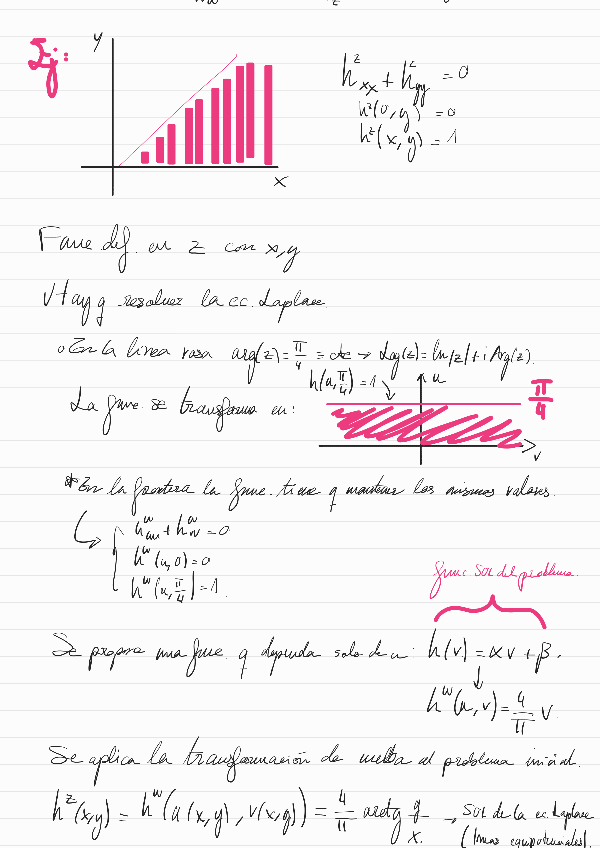 Ej:
y
x
h^z_xx + h^z_yy = 0
h^z(0,y) = 0
h^z(x,y) = 1
Func def. en z con x,y
V hay q resolver la ec. Laplace
o En la línea rosa arg(z) = π/4 = cte → Log(z) = ln|z| + i Arg(z).
h(u, π/4) = 1
u
π/4
La func. se transforma en:
v
* En la frontera la func. tiene q mantener los mismos valores.
h^w_uu + h^w_vv = 0
h^w(u,0) = 0
h^w(u, π/4) = 1.
func. sol del problema
Se propone una func. q dependa solo de u: h(v) = αv + β.
h^w(u,v) = 4/π v
Se aplica la transformación de vuelta al problema inicial.
h^z(x,y) = h^w(u(x,y), v(x,y)) = 4/π arctg y/x → sol de la ec. Laplace
(líneas equipotenciales).